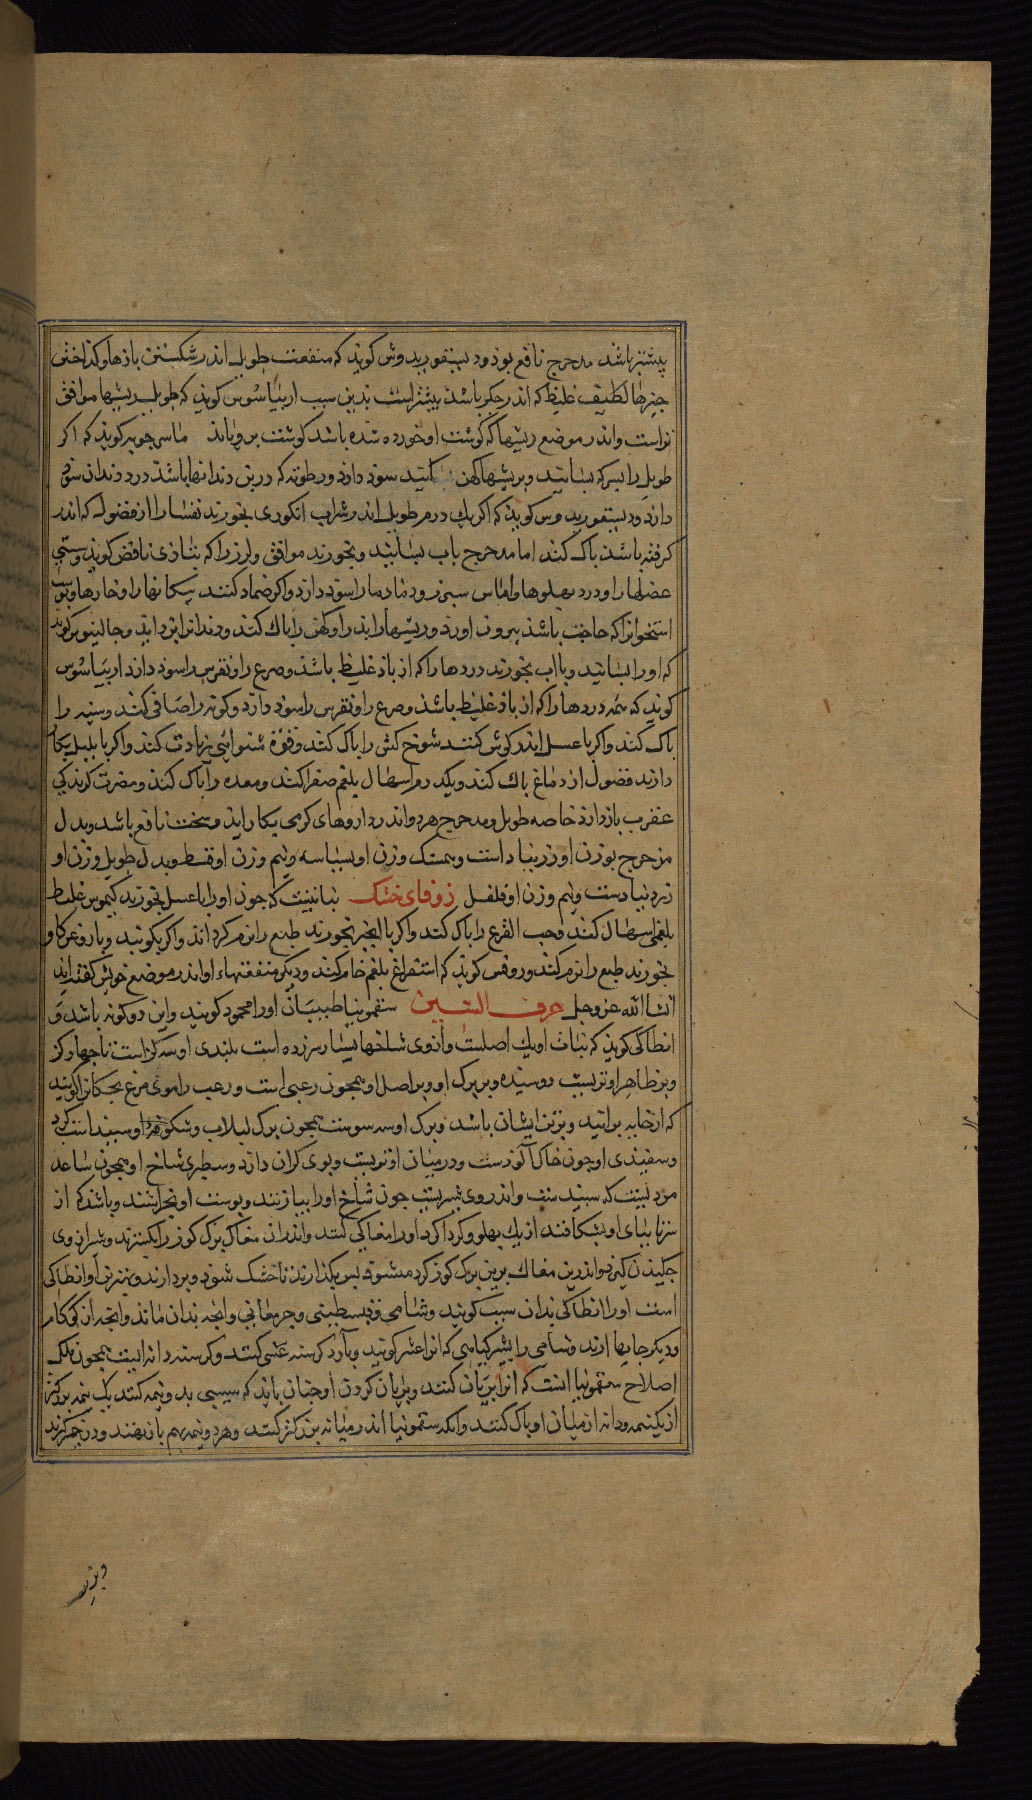 بیشتر باشد مدحرج نافع بوذ و دیسقوریدوس کویذ که منفعت طویل اندر شکستن باذها و کداختن
چیزها لطیف غلیظ که اندر جکر باشذ بیشتر است بدین سبب اریباسوس کویذ که طویل ریشها موافق
تر است و اندر موضع ریشها که کوشت او خورده شده باشد کوشت برویاند ماسرجویه کویذ که اکر
طویل را بسرکه بسایند و بریشهاء کهن کنند سوذ دارذ و رطوبه که در بن دندانها باشذ درد دندان سوذ
دارذ و دیسقوریدوس کویذ که اکر یک درم طویل اندر شراب انکوری بخورند نفسا را از فضول که اندر
کرفته باشذ باک کند اما مدحرج باب بسایند و بخورند موافق ولرز را که بتازی نافض کویند و سستی
عضلها را و درد بهلوها و اماس سبرز و دمادما را سوذ دارذ و اکر ضماد کنند بیکانها را و خارها و بوست
استخوانرا که حاجت باشذ بیرون اورذ و ریشها را و کهن را باک کند و دندانرا بزدایذ و جالینوس کویذ
که او را بسایند و باب بخورند دردها را که از باذ غلیظ باشذ و صرع را و نقرس را سوذ دارذ اریباسوس
کویذ که همه دردها را که از باذ غلیظ باشذ و صرع را و نقرس را سوذ دارذ و کونه را صافی کند و سینه را
باک کند و اکر با عسل اندر کوش کنند شوخ کش را باک کند و قوة شنوائی زیادت کند و اکر با بلبل بکار
دارند فضول از دماغ باک کند و یکدرم اسهال بلغم صفرا کند و معده را باک کند و مضرت کزندکی
عقرب بازدارذ خاصه طویل و مدحرج هر دو اندر داروهای کرمی بکار اید و سخت نافع باشد و بدل
مدحرج بوزن او زرنباد است و سه یک وزن او بسباسه و نیم وزن او قسط و بدل طویل وزن او
زرنباد ست و نیم وزن او فلفل زوفای خشک نباتیست که جون او را با عسل بخورند کیموس غلیظ
بلغمی اسهال کند و حب القرع را باک کند و اکر با انجیر بخورند طبع را نرم کرداند و اکر بکوبند و با روغن کاو
بخورند طبع را نرم کند و روفس کویذ که استفراغ بلغم خام کند و دیکر منفعتهاء او اندر موضع خویش کفته اید
انشاالله عز وجل حرف السین سقمونیا طبیبان او را محموده کویند و این دو کونه باشد و
انطاکی کویذ که نبات او یک اصلست و از وی شاخها بسیار سر زده است بلندی او سه کز است تا جهار کز
و بر ظاهر او تریست دوسنده و بر برک او و بر اصل او همجون زغبی است و زغب را موی مرغ بجکانرا کویند
که از خایه برایند و بر تن ایشان باشد و برک او سه سوست همجون برک لبلاب و شکوفه او سبید است کرد
و سفیندی او جون خاک الوذست و در میان او تریست و بوی کران دارد و سطبری شاخ او همجون ساعد
مردیست که سبید ست و اندر وی شیریست جون شاخ او را بیازنند و بوست او بخراشند و باشد که از
سر تا بتای او بشکافند از یک بهلو و کردا کرد او را مغاکی کنند و اندران مغاک برک کوز را بکسترند و شیر از وی
جکیدن کیرد و اندرین مغاک برین برک کوز کرد میشوذ بس بکذارند تا خشک شوذ و بردارند و بهترین او انطاکی
است او را انطاکی بدان سبب کویند و شامی و فلسطینی و جرمقانی و انجه بدان ماند و انجه از کوه لکام
و دیکر جایها ارند و شامی را بشیر کیاهی که انرا عشر کویند و بآرد کرسنه غش کنند و کرسنه دانه ایست همجون ملک
اصلاح سقمونیا انست که انرا بریان کنند و بریان کردن او جنان باید که سیبی بدو نیمه کنند یک نیمه بزرکتر
از یکنیمه و دانه از میان او باک کنند و انکه سقمونیا اندر میانه بزرکتر کنند و هر دو نیمه بهم بازنهند و در خمیر کیرند
و بر